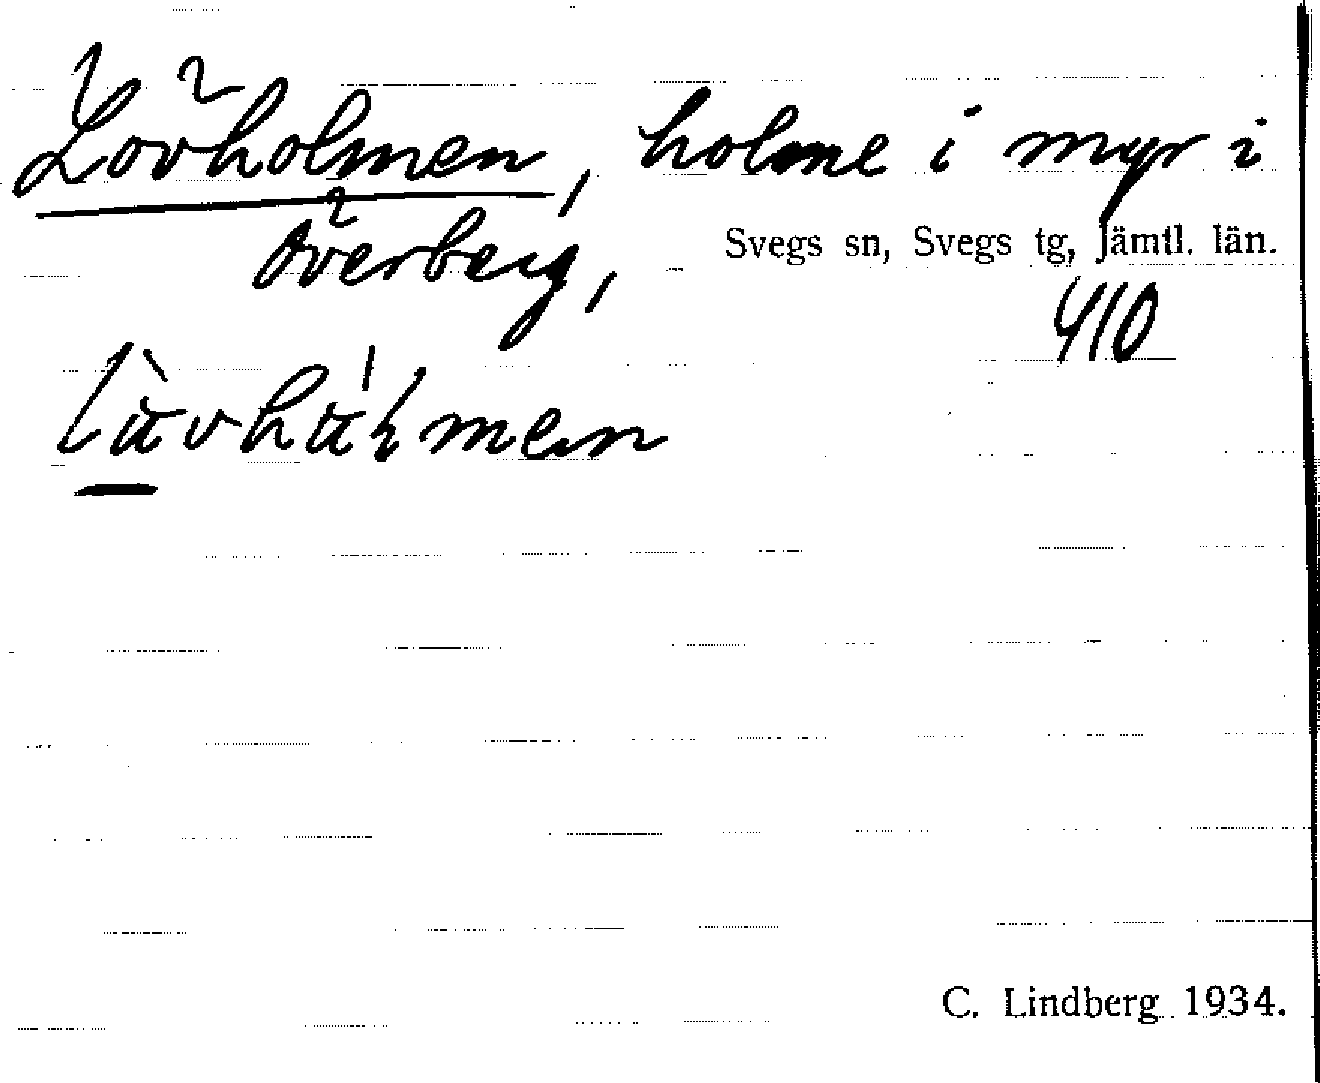 Lövholmen, holme i myr i
Överberg, Svegs sn, Svegs tg, Jämtl. län.
410
C. Lindberg 1934.